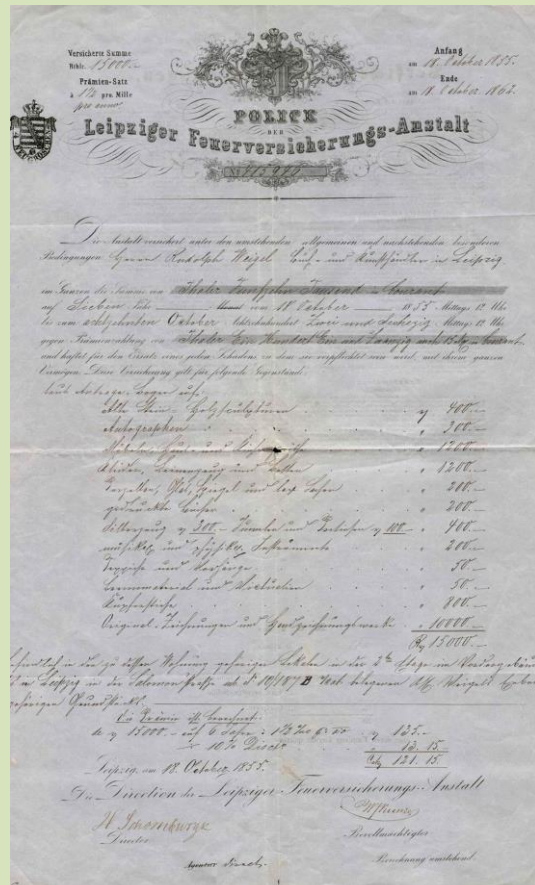 Versicherte Summe
Rthlr. 15000.—
Prämien-Satz
à 1½ pro Mille
pro anno
Anfang
am 18. October 1855.
Ende
am 18. October 1862.
POLICE
DER
Leipziger Feuerversicherungs-Anstalt
Die Anstalt versichert unter den umstehenden allgemeinen und nachstehenden besonderen
Bedingungen Herrn Rudolph Weigel, Buch- und Kunsthändler in Leipzig
im Ganzen die Summe von Thaler Fünfzehn Tausend in Courant
auf Sieben Jahre vom 18 October 1855 Mittags 12 Uhr
bis zum achtzehnten October Achtzehnhundert Zwei und Sechszig Mittags 12 Uhr
gegen Prämienzahlung von Thaler Ein Hundert Ein und Zwanzig
und haftet für den Ersatz eines jeden Schadens, zu dem sie verpflichtet sein wird, mit ihrem ganzen
Vermögen. Diese Versicherung gilt für folgende Gegenstände:
laut Antrags-Bogen auf:
Alte Holzsculpturen 400.—
Autographen 300.—
Möbeln, Haus- und 1200.—
Kleider, Leinenzeug und Betten 1200.—
Porzellan, Glas, Spiegel und 200.—
gedruckte Bücher 200.—
Silberzeug 300.— Juwelen und 100.— 400.—
musikal. und physikal. Instrumente 200.—
Teppiche und Vorhänge 50.—
Brennmaterial und 50.—
Kupferstiche 800.—
Original-Zeichnungen und Handzeichnungswerke 10000.—
15000.—
befindlich in den zu dessen Wohnung gehörigen Lokalen in der Etage im Vordergebäude
in Leipzig in der Salomonstraße
gehörigen Grundstücks.
Die Prämie ist berechnet:
15000.— auf 6 Jahre 135.—
10% 13. 15.—
121. 15.—
Leipzig, am 18. October 1855.
Die Direction der Leipziger Feuerversicherungs-Anstalt
Director
Bevollmächtigter.
Agentur direct.
Berechnung umstehend.